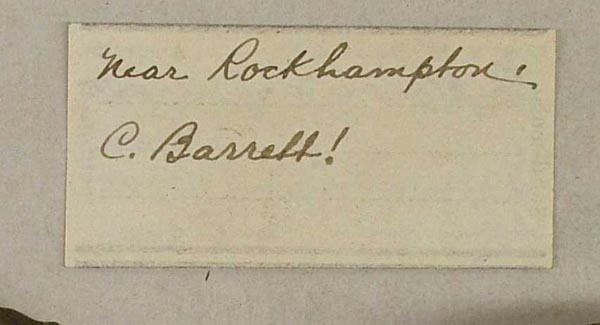 Near Rockhampton.
C. Barrett!